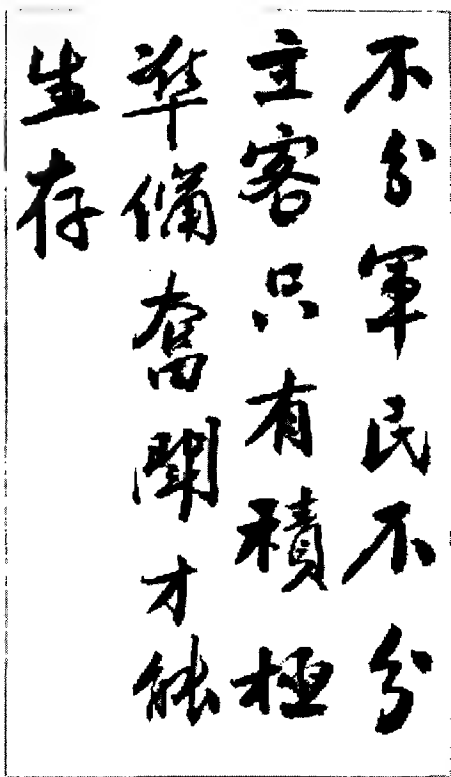 不分軍民不分
主客只有積極
準備奮鬭才能
生存